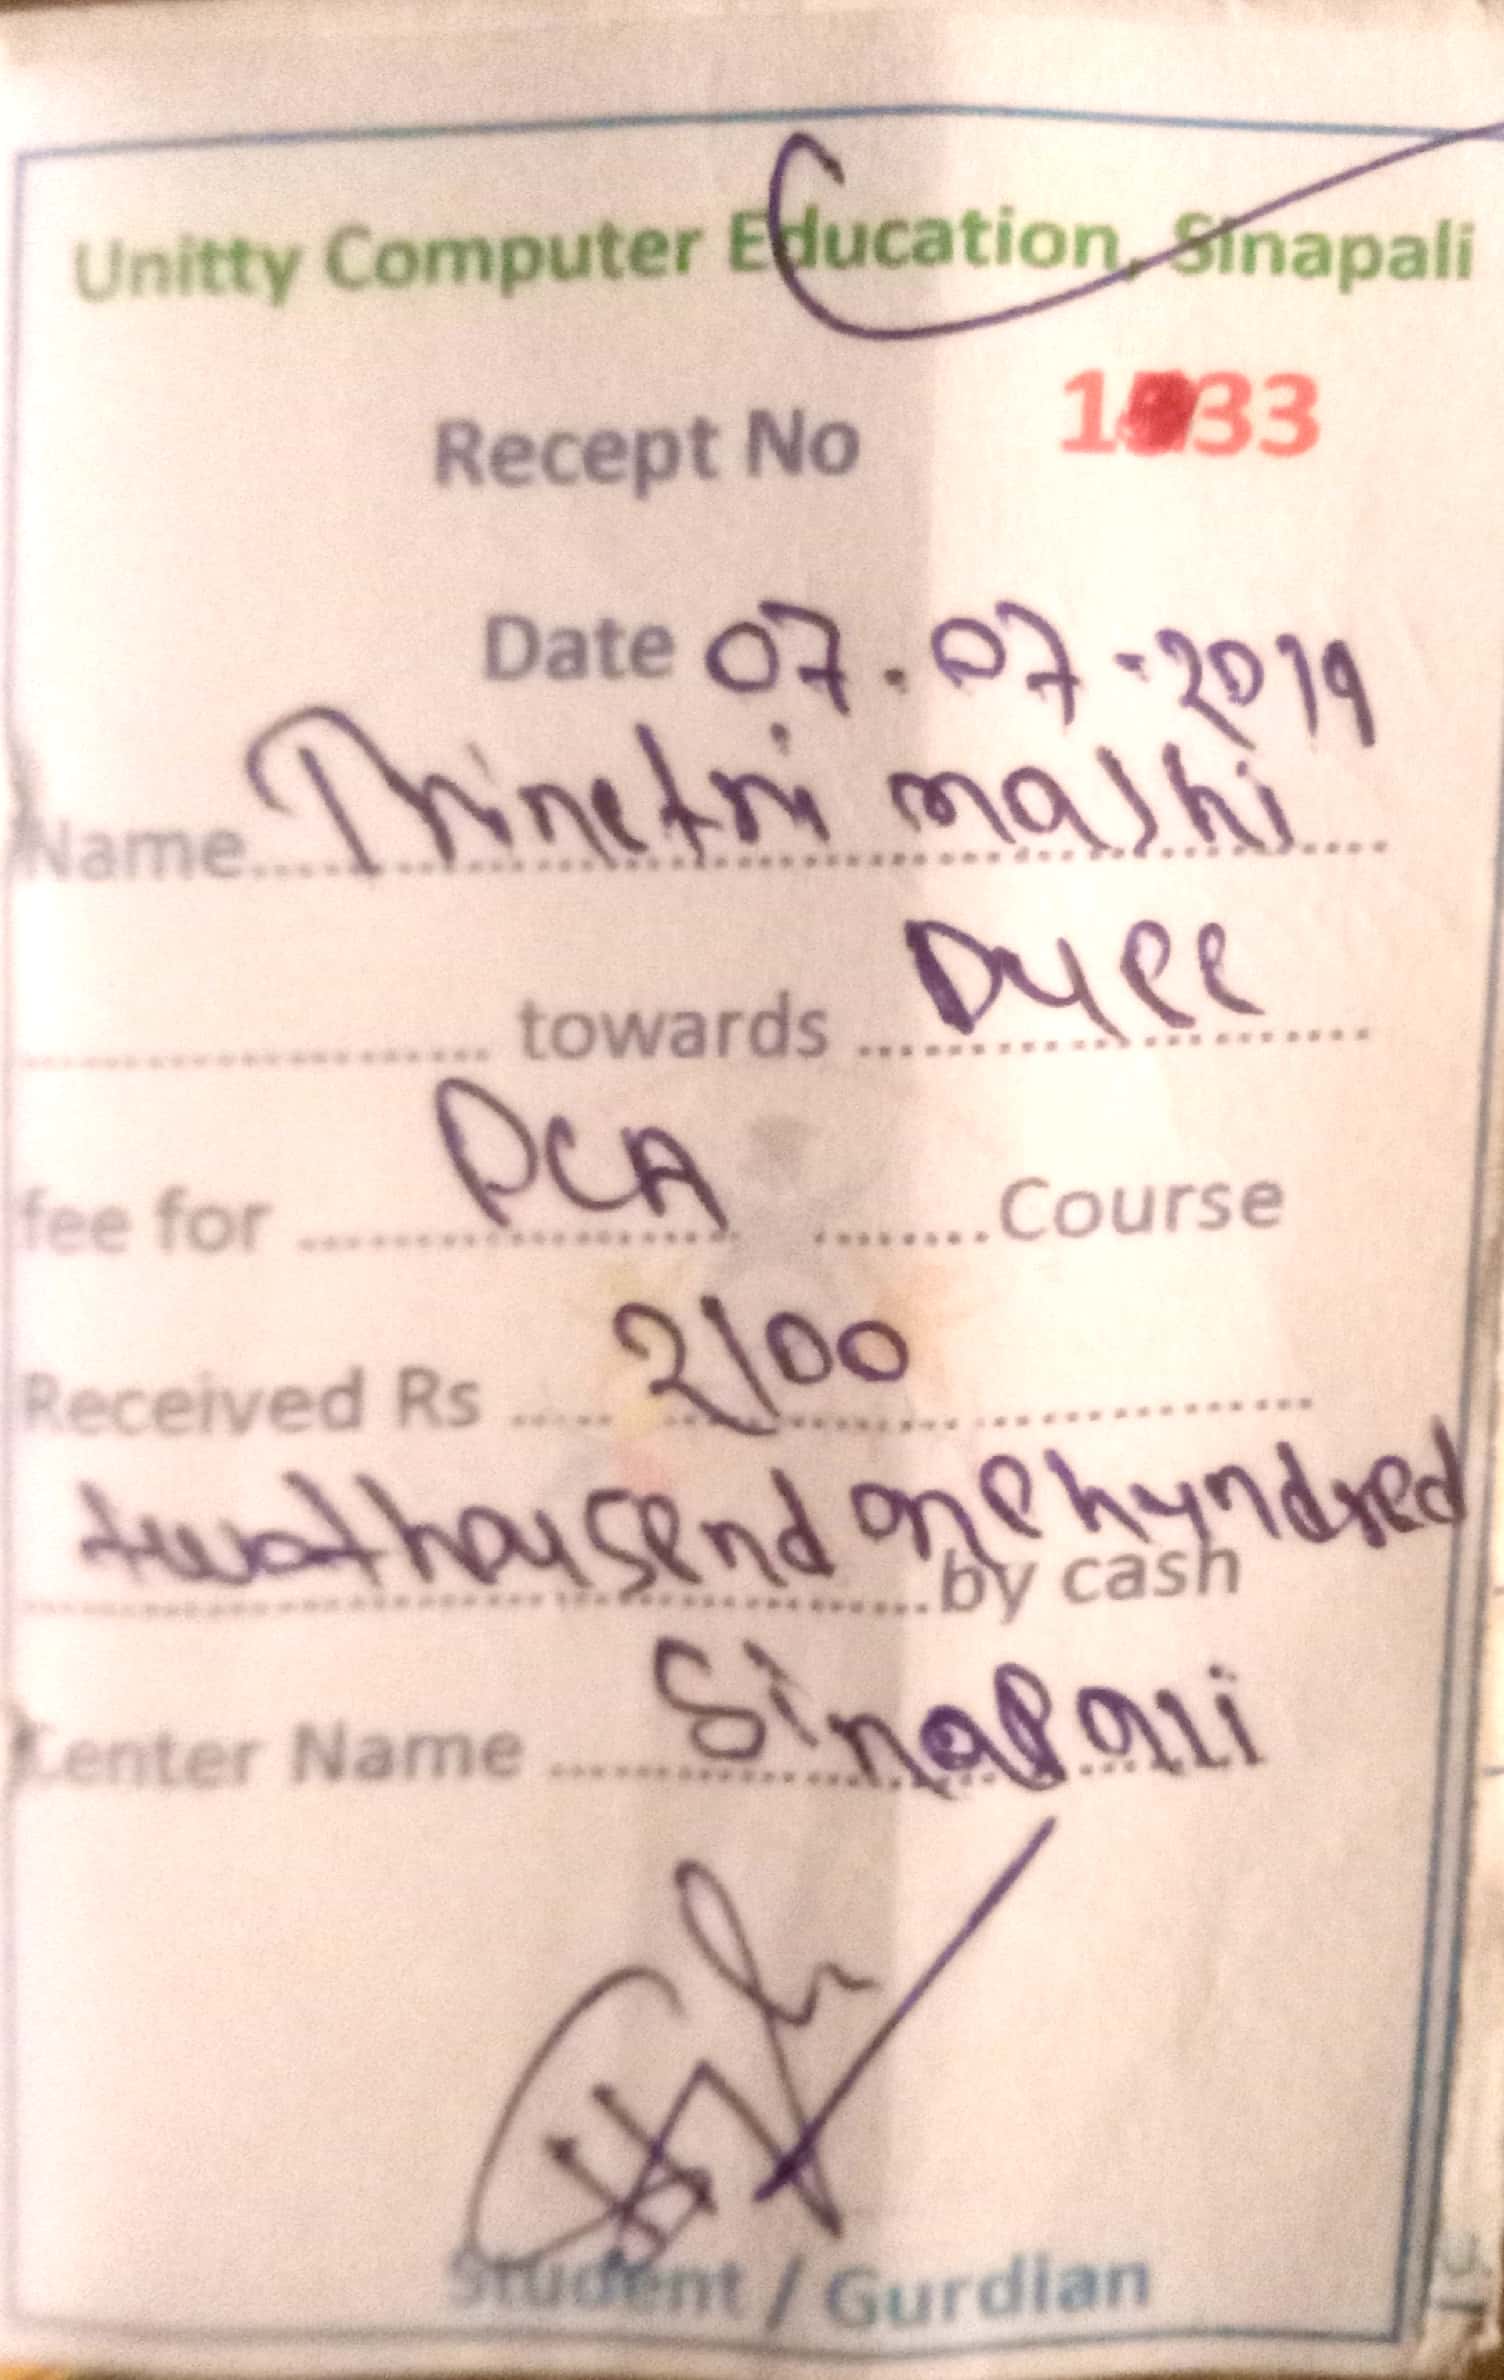 Unitty Computer Education, Sinapali
Recept No 1533
Date 07.07-2019
Name Trinetri mashi
towards Dyee
fee for PCA Course
Received Rs 2100
twothousend one hundred
by cash
Center Name Sinapali
Student / Gurdian